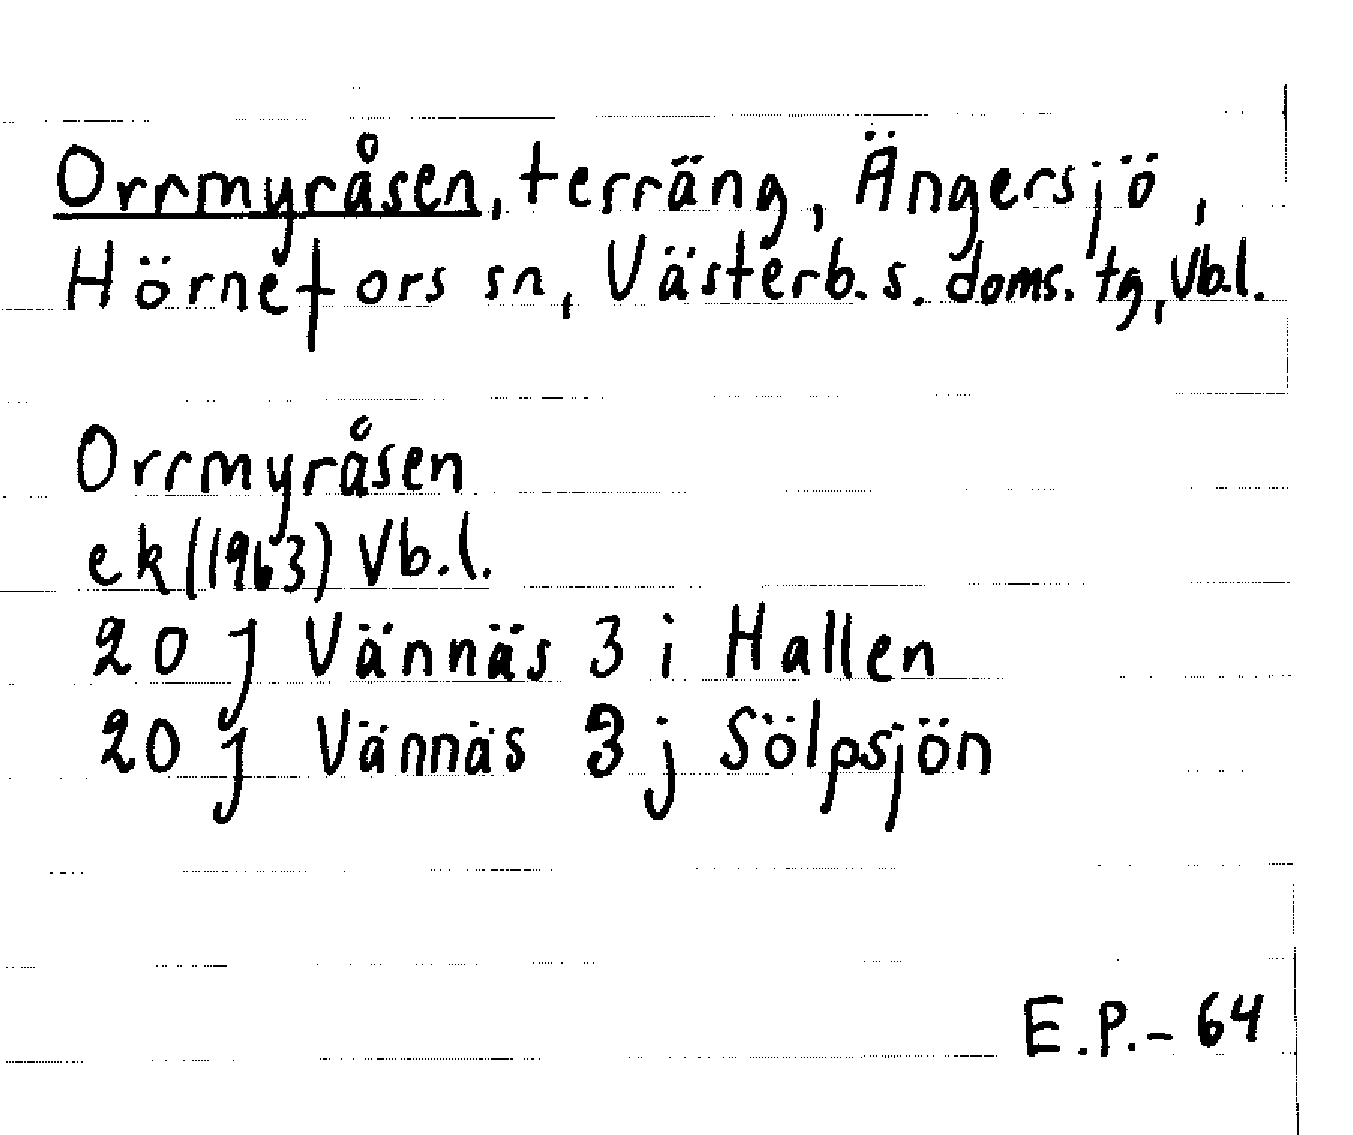 Orrmyråsen, terräng, Ängersjö,
Hörnefors sn, Västerb. s. doms. tg, Vb.l.
Orrmyråsen
ek (1963) Vb.l.
20 J Vännäs 3 i Hallen
20 J Vännäs 3 j Sölpsjön
E.P.-64